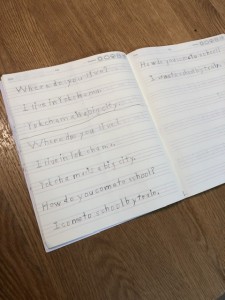 Where do you live?
I live in Yokohama.
Yokohama is a big city.
Where do you live?
I live in Yokohama.
Yokohama is a big city.
How do you come to school?
I come to school by train.
How do you come to school?
I come to school by train.